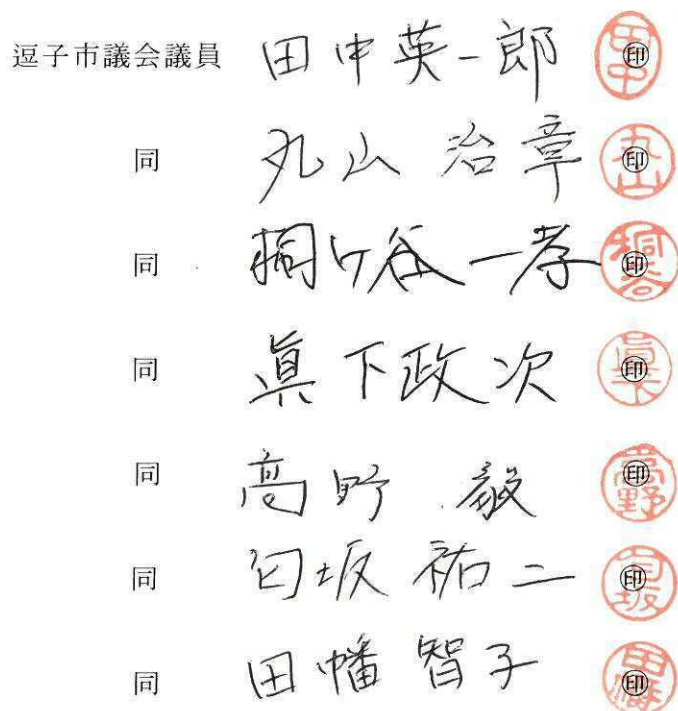 逗子市議会議員 田中英一郎 ㊞
同 丸山治章 ㊞
同 桐ケ谷一孝 ㊞
同 眞下政次 ㊞
同 高野毅 ㊞
同 匂坂祐二 ㊞
同 田幡智子 ㊞